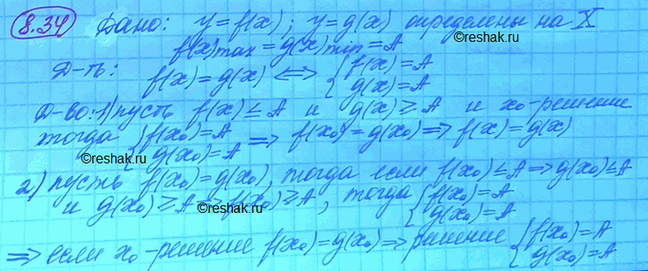 8.34 Дано: y=f(x); y=g(x) определены на X
f(x)max = g(x)min = A
Д-ть: f(x)=g(x) ⟺ {f(x)=A
{g(x)=A
©reshak.ru
Д-во: 1) пусть f(x) ≤ A и g(x) ≥ A и x₀-решение
тогда {f(x₀)=A
{g(x₀)=A ⟹ f(x₀)=g(x₀) ⟹ f(x)=g(x)
©reshak.ru
2) пусть f(x₀)=g(x₀), тогда если f(x₀) ≤ A ⟹ g(x₀) ≤ A
и g(x₀) ≥ A ⟹ f(x₀) ≥ A, тогда {f(x₀)=A
{g(x₀)=A
©reshak.ru
⟹ если x₀-решение f(x₀)=g(x₀) ⟹ решение {f(x₀)=A
{g(x₀)=A